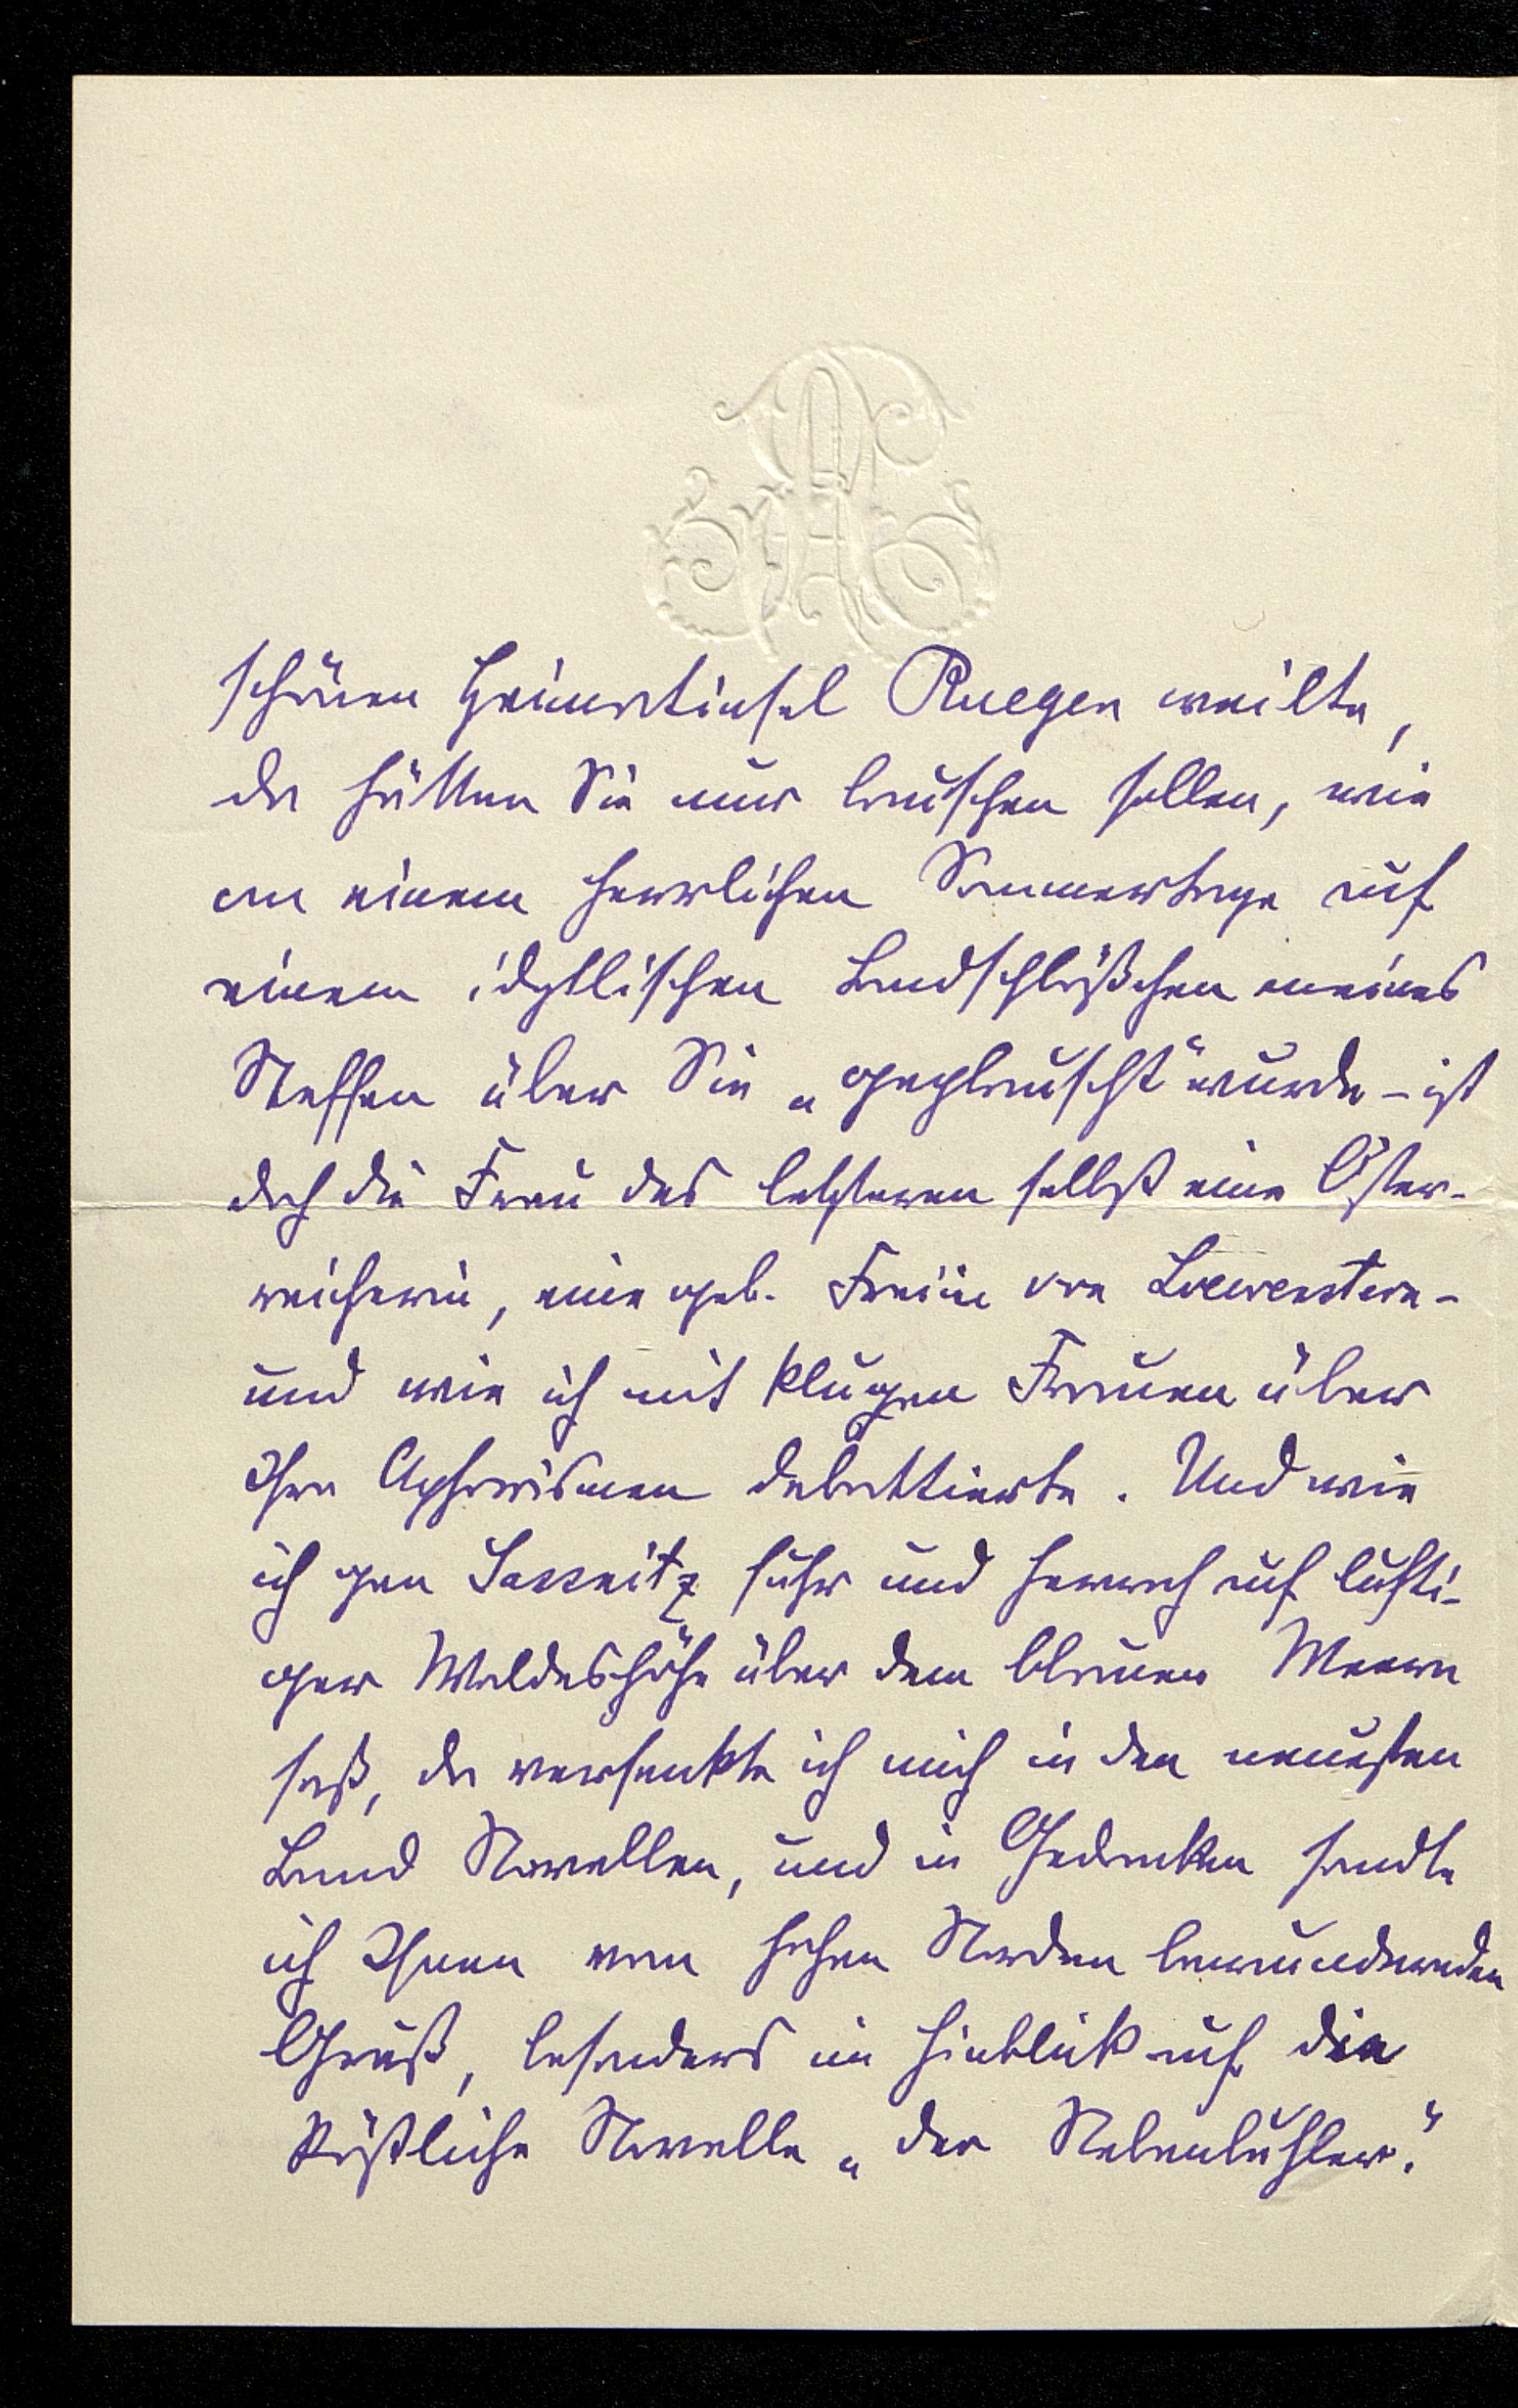 schönen Heimatinsel Ruegen weilte,
da hätten Sie nur lauschen sollen, wie
an einem herrlichen Sommertage auf
einem idyllischen Landschlößchen meines
Neffen über Sie „geplauscht“ wurde – ist
doch die Frau des letzteren selbst eine Öster-
reicherin, eine geb. Freiin von Loewenstern –
und wie ich mit klugen Frauen über
Ihre Aphorismen debattierte. Und wie
ich gen Sassnitz fuhr und hernach auf lufti-
ger Waldeshöhe über dem blauen Meere
saß, da versenkte ich mich in den neuesten
Band Novellen, und in Gedanken sandte
ich Ihnen vom hohen Norden bewundernden
Gruß, besonders im Hinblick auf die
köstliche Novelle „der Nebenbuhler.“